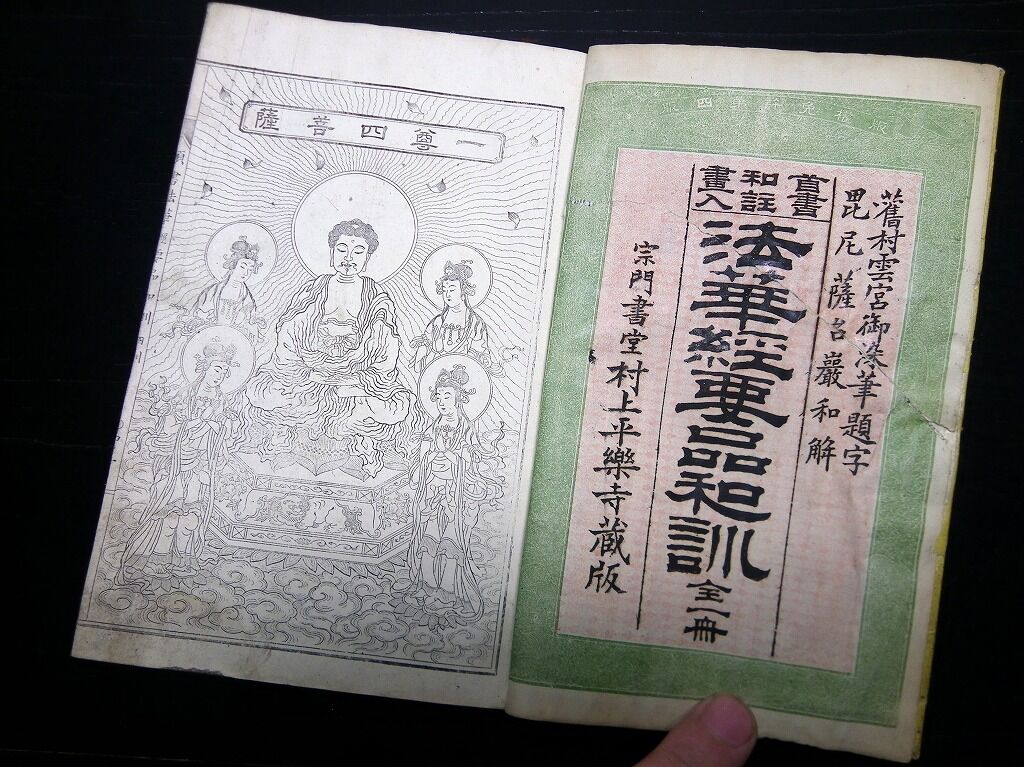 版權免許第四
舊村雲宮御染筆題字
毘尼薩台巖和解
首書
和註
畫入
法華經要品和訓全一冊
宗門書堂村上平樂寺蔵版
一尊四菩薩